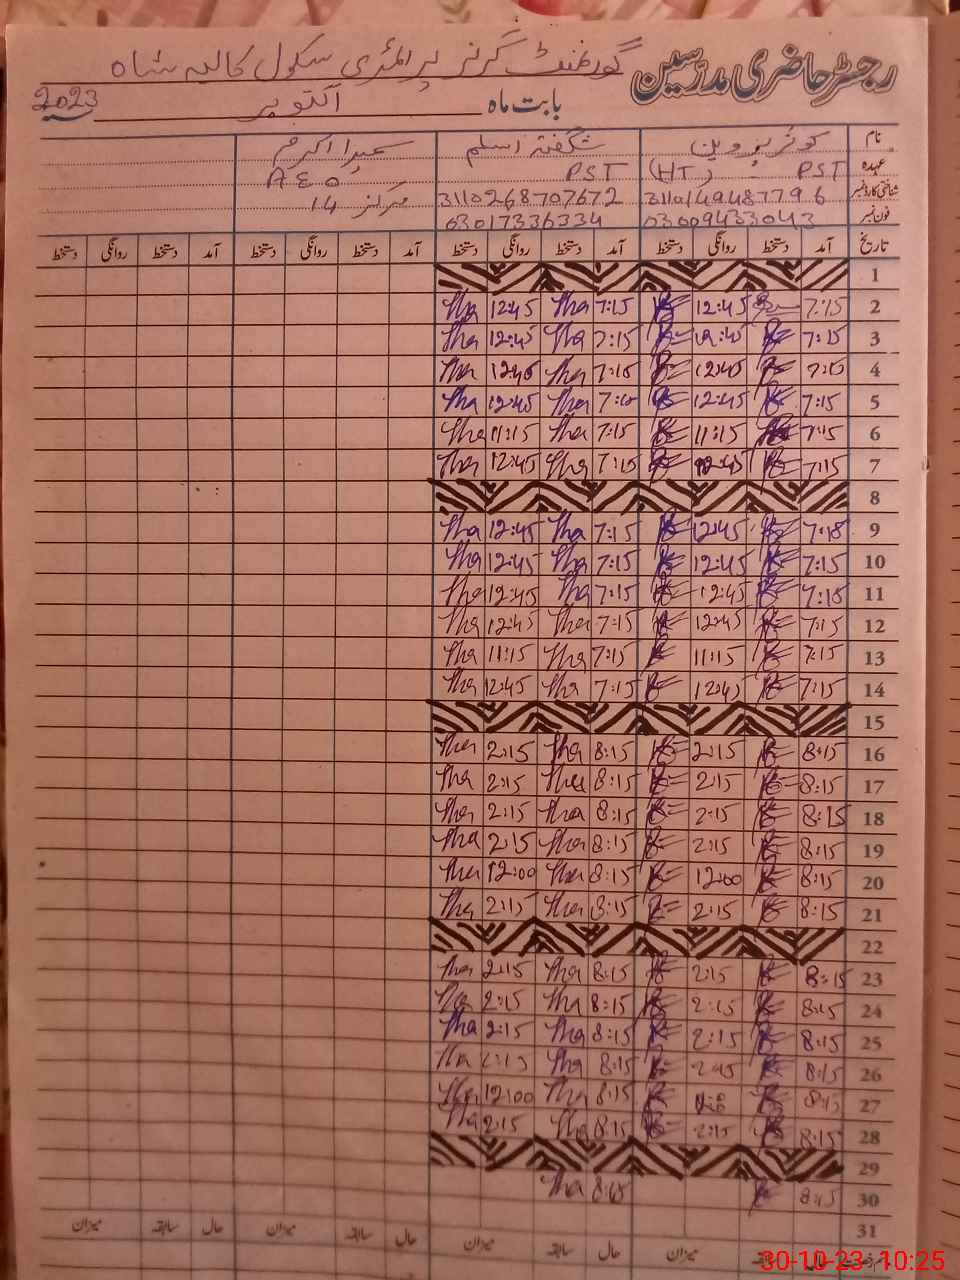 رجسٹر حاضری مدرسین گورنمنٹ گرلز پرائمری سکول کالیہ شاہ
بابت ماہ اکتوبر 2023
نام کوثر پروین شگفتہ اسلم سمیرا اکرم
عہدہ PST (HT) PST AEO
شناختی کارڈ نمبر 3110149487796 3110268707672 مرکز 14
فون نمبر 03009433043 03017336334
تاریخ آمد دستخط روانگی دستخط آمد دستخط روانگی دستخط آمد دستخط روانگی دستخط آمد دستخط روانگی دستخط
1
2 7:15 12:45 7:15 Tha 12:45 Tha
3 7:15 12:45 7:15 Tha 12:45 Tha
4 7:15 12:45 7:15 Tha 12:45 Tha
5 7:15 12:45 7:15 Tha 12:45 Tha
6 7:15 11:15 7:15 Tha 11:15 Tha
7 7:15 12:45 7:15 Tha 12:45 Tha
8
9 7:15 12:45 7:15 Tha 12:45 Tha
10 7:15 12:45 7:15 Tha 12:45 Tha
11 7:15 12:45 7:15 Tha 12:45 Tha
12 7:15 12:45 7:15 Tha 12:45 Tha
13 7:15 11:15 7:15 Tha 11:15 Tha
14 7:15 12:45 7:15 Tha 12:45 Tha
15
16 8:15 2:15 8:15 Tha 2:15 Tha
17 8:15 2:15 8:15 Tha 2:15 Tha
18 8:15 2:15 8:15 Tha 2:15 Tha
19 8:15 2:15 8:15 Tha 2:15 Tha
20 8:15 12:00 8:15 Tha 12:00 Tha
21 8:15 2:15 8:15 Tha 2:15 Tha
22
23 8:15 2:15 8:15 Tha 2:15 Tha
24 8:15 2:15 8:15 Tha 2:15 Tha
25 8:15 2:15 8:15 Tha 2:15 Tha
26 8:15 2:15 8:15 Tha 2:15 Tha
27 8:15 8:15 Tha 12:00 Tha
28 8:15 2:15 8:15 Tha 2:15 Tha
29
30 8:15 8:15 Tha
31
حال سابقہ میزان حال سابقہ میزان حال سابقہ میزان حال سابقہ میزان
30-10-23 10:25